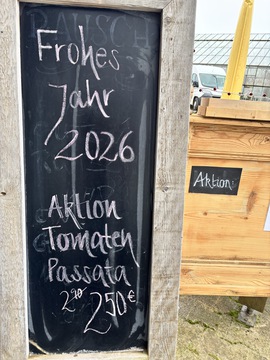 Frohes
Jahr
2026
Aktion
Tomaten
Passata
2,50€
Aktion